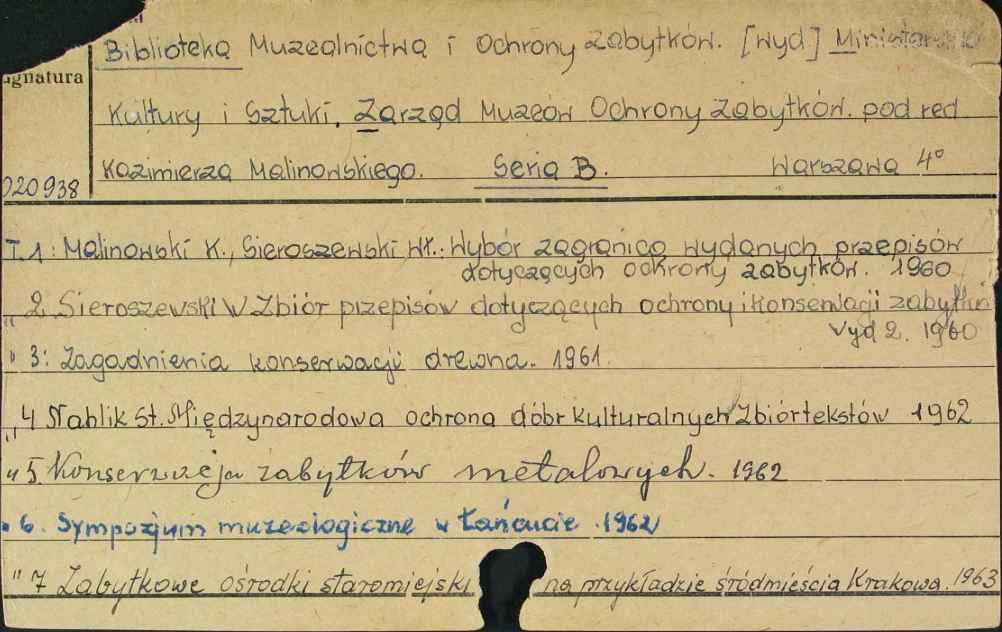 Biblioteka Muzealnictwa i Ochrony Zabytków. [Wyd] Ministerstwo
ygnatura
Kultury i Sztuki. Zarząd Muzeów Ochrony Zabytków. pod red
Kazimierza Malinowskiego. Seria B. Warszawa 4°
020938
T.1: Malinowski K., Sieroszewski Wł.: Wybór zagranicą wydanych przepisów
dotyczących ochrony zabytków. 1960
" 2 Sieroszewski W Zbiór przepisów dotyczących ochrony i konserwacji zabytków
Wyd 2. 1960
" 3: Zagadnienia konserwacji drewna. 1961.
" 4 Nahlik St. Międzynarodowa ochrona dóbr kulturalnych Zbiór tekstów 1962
" 5. Konserwacja zabytków metalowych. 1962
" 6. Sympozjum muzeologiczne w Łańcucie. 1962
" 7 Zabytkowe ośrodki staromiejski na przykładzie śródmieścia Krakowa. 1963